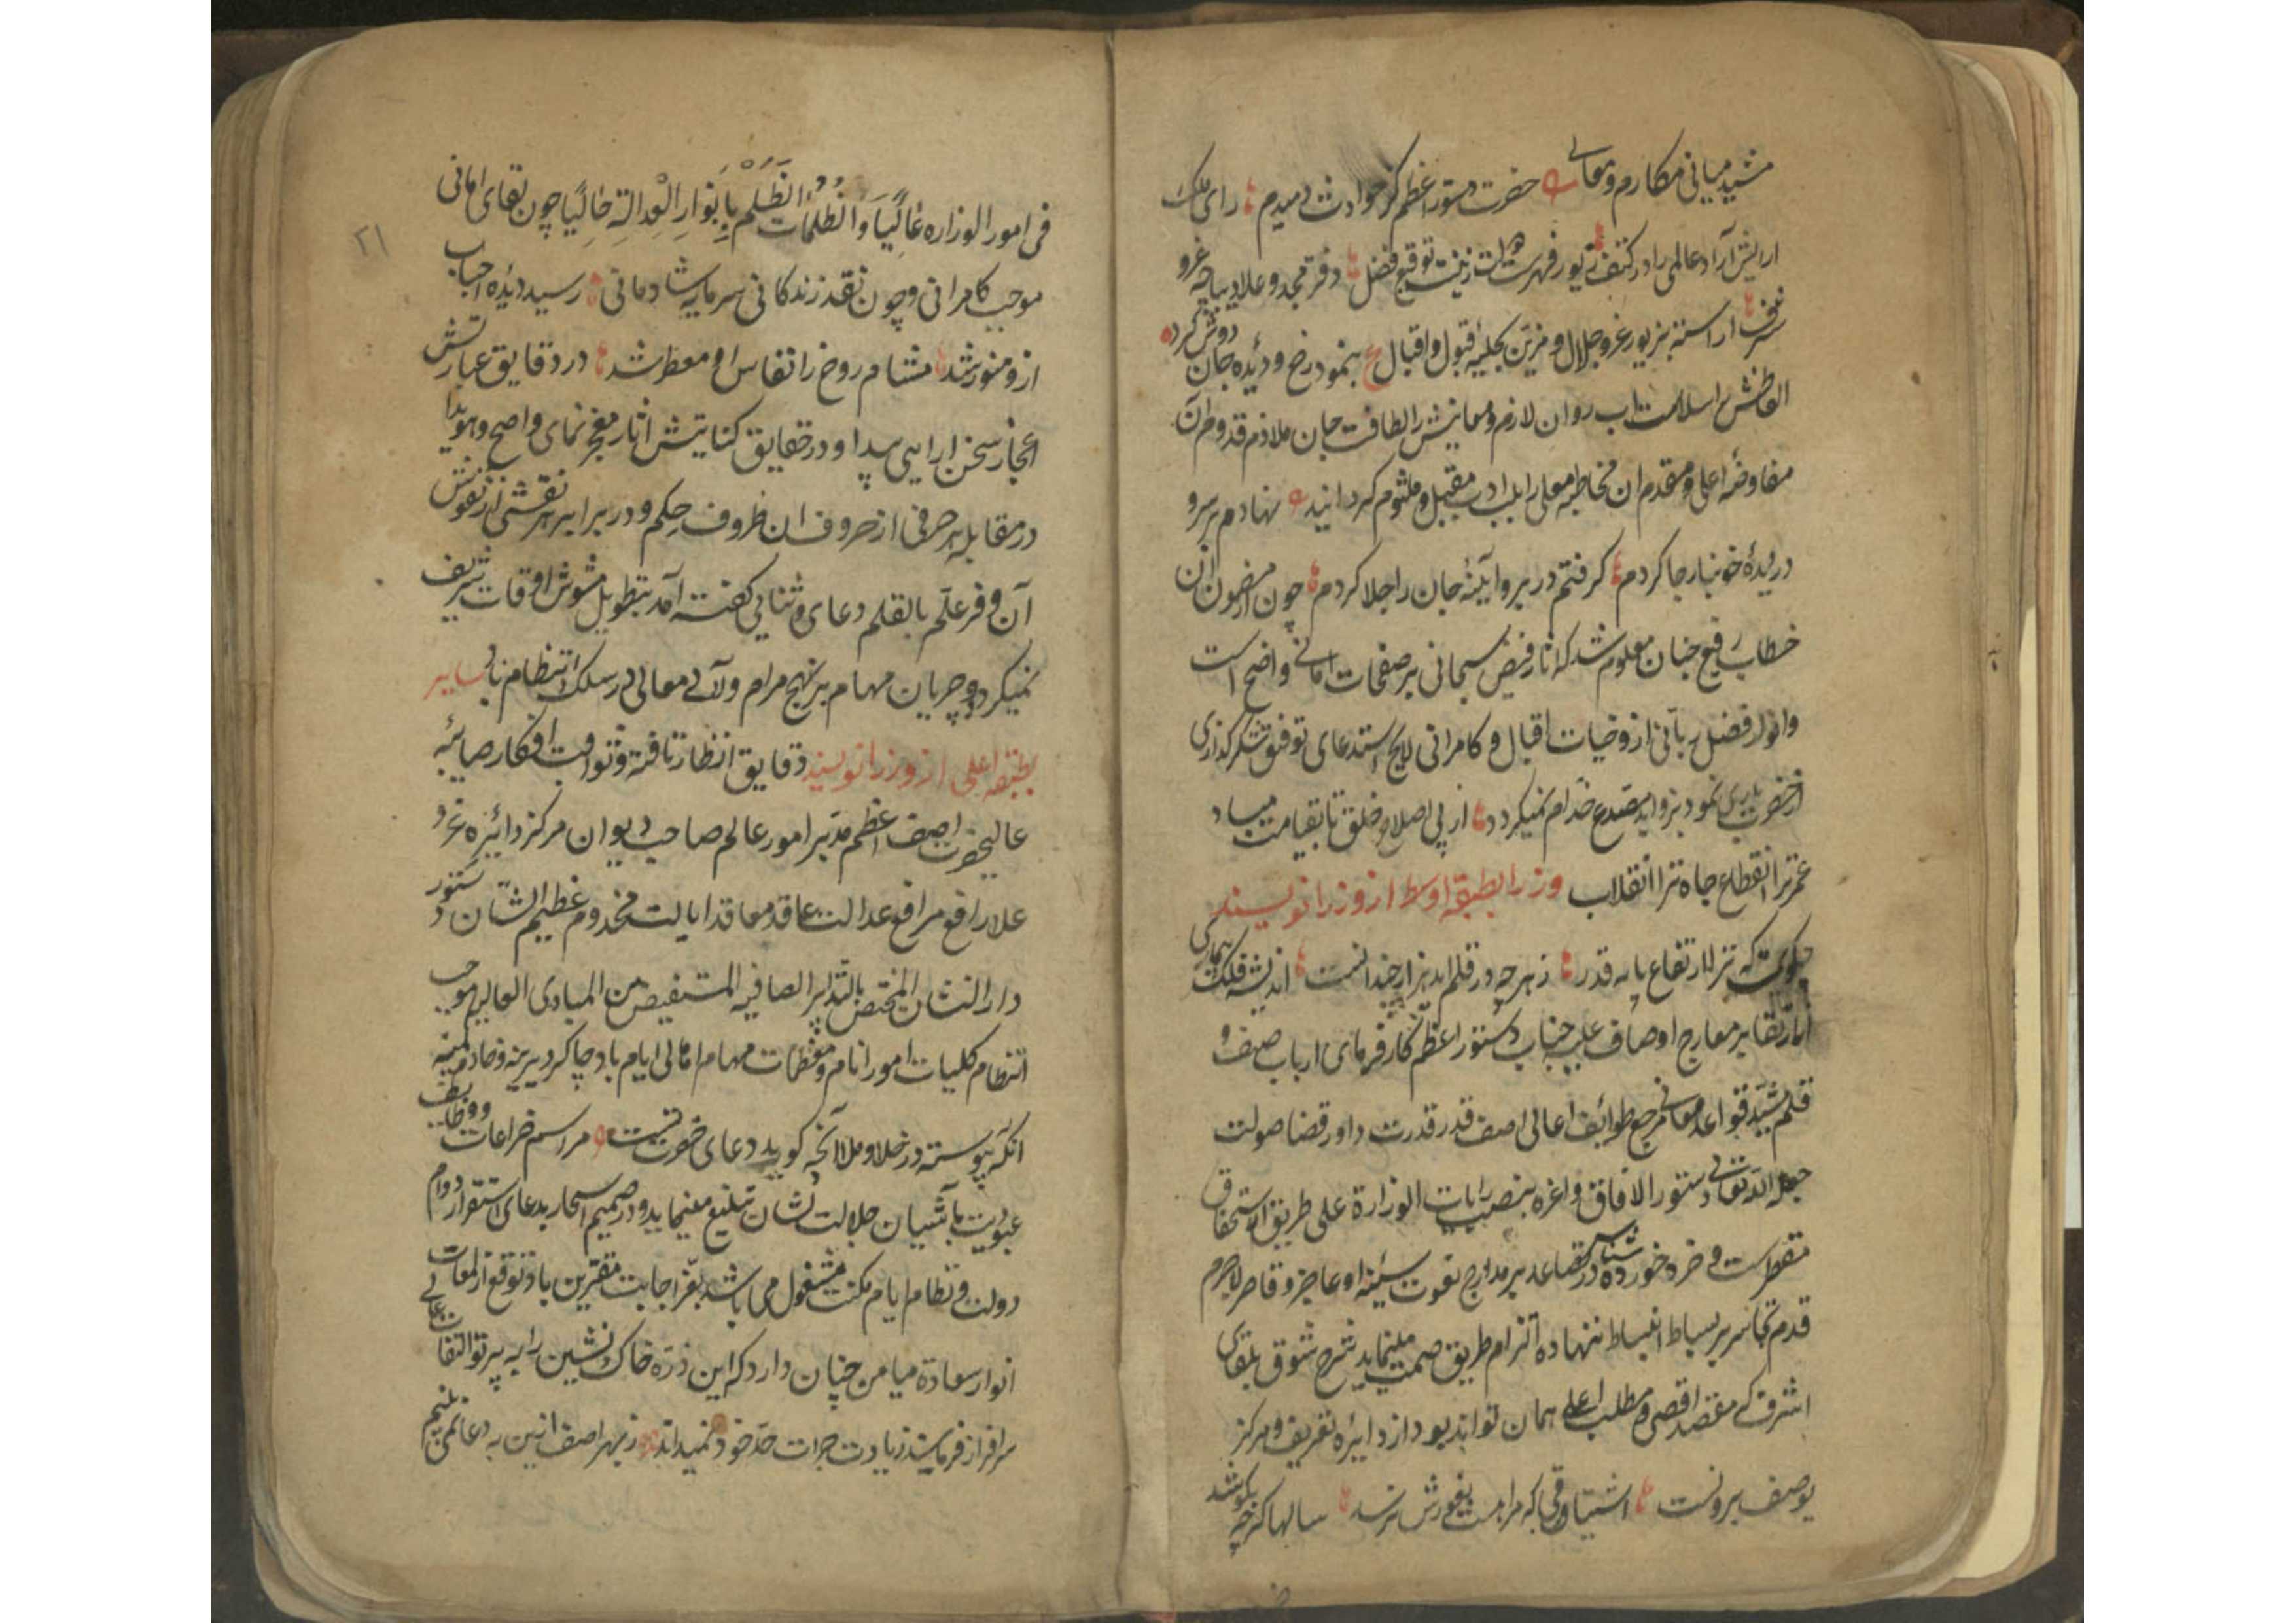 مشید مبانی مکارم و معالی ه حضرت دستور اعظم کز حوادث دمیدم رای ملک
ارایش آراد عالمی را در کنف فهرست زینت توقیع فضل دفتر مجد و علا دیباجه غرو
شرف اراسته بزیور عز و جلال و مزین بحلیه قبول و اقبال ع بنمود رخ و دیده جان روشن کرده
الفاظش را سلاست اب روان لازم و معانیش را لطافت جان ملازم قدوم آن
مفاوضه اعلی و مقدم ان مخاطبه معلی را بلب ادب مقبل و ملثوم گردانید ه نهادم بر سر و
در دیدهٔ خونبار جا کردم گرفتم در بر و آیینهٔ جان را جلا کردم چون از مضمون ان
خطاب رفیع جناب معلوم شد که اثار فیض سبحانی بر صفحات امانی واضح است
وانوار فضل ربانی از وجنات اقبال و کامرانی لایح استدعای توفیق شکرگذاری
از حضرت باری نمود بزواید مصدع خدام نمیگردد از پی اصلاح خلق تا بقیامت مباد
عمر ترا انقطاع جاه ترا انقلاب وزرا بطبقه اوسط از وزرا نویسند
که تز لارتفاع پایه قدر ز هرچه در قلم اید هزار چندانست اندیشه فلک پیمای
تقابر معارج اوصاف علیه جناب دستور اعظم کارفرمای ارباب صیف و
قلم مشید قواعد معالی مرجع طوایف اعالی اصف قدر قدرت داور قضا صولت
جعله الله تعالی دستور الافاق واعزه بنصب رایات الوزارة علی طریق الاستحقاق
مقصر است و خرد خورده شناس در تصاعد بر مدارج نعوت سنیه او عاجز و قاصر لاجرم
قدم تجاسر بر بساط انبساط ننهاده التزام طریق صمت مینماید شرح شوق بلقای
اشرف که مقصد اقصی و مطلب اعلی همان تواند بود از دایره تعریف و مرکز
توصیف بیرونست اشتیاقی که مراهست بغورش نرسد سالها گرچه بکوشد
۲۱
فی امور الوزاره غالیا و الظلمات الظلم بانوار العدالة خالیا چون بقای امانی
موجب کامرانی و چون نقد زندگانی سرمایه شادمانی رسید دیده احباب
ازو منور شد مشام روح زانفاس او معطر شد در دقایق عبارتش
اعجاز سخن ارایی پیدا و در حقایق کنایتش اثار معجز نمای واضح و هویدا
در مقابله هر حرفی از حروف ان ظروف حکم و در برابر هر نقشی از نقوش
آن و فر علم بالقلم دعای و ثنایی گفته آمد بتطویل مشوش اوقات شریف
نمیگردد جریان مهام بر نهج مرام و لآلی معالی در سلک انتظام باد سایر
بطبقه اعلی از وزرا نویسند دقایق انظار ثاقبه و ثواقب افکار صایبه
عالیحضرت اصف اعظم مدبر امور عالم صاحب دیوان مرکز دایره عز و
علا رافع مرافع عدالت عاقد معاقد ایالت مخدوم عظیم الشان دستور
دارالنشان المختص بالتدابیر الصافیه المستفیض من المبادی العالیه موجب
انتظام کلیات امور انام و معظمات مهام اهالی ایام باد چاکر دیرینه و خادم کمینه
انکه پیوسته در خلا و ملا آنچه گوید دعای حضرت تست ه مراسم ضراعات و وظایف
عبودیت بآشیان جلالت نشان تبلیغ مینماید و در صمیم اسحار بدعای استقرار دوام
دولت و نظام ایام مکنت مشغول می باشد بعز اجابت مقترین باد توقع از لمعات
انوار سعادة میامن چنان دارد که این ذره خاک نشین را به پرتو التفات عالی
سرافراز فرمایند زیادت جرات حد خود نمیداند ز مهر اصف